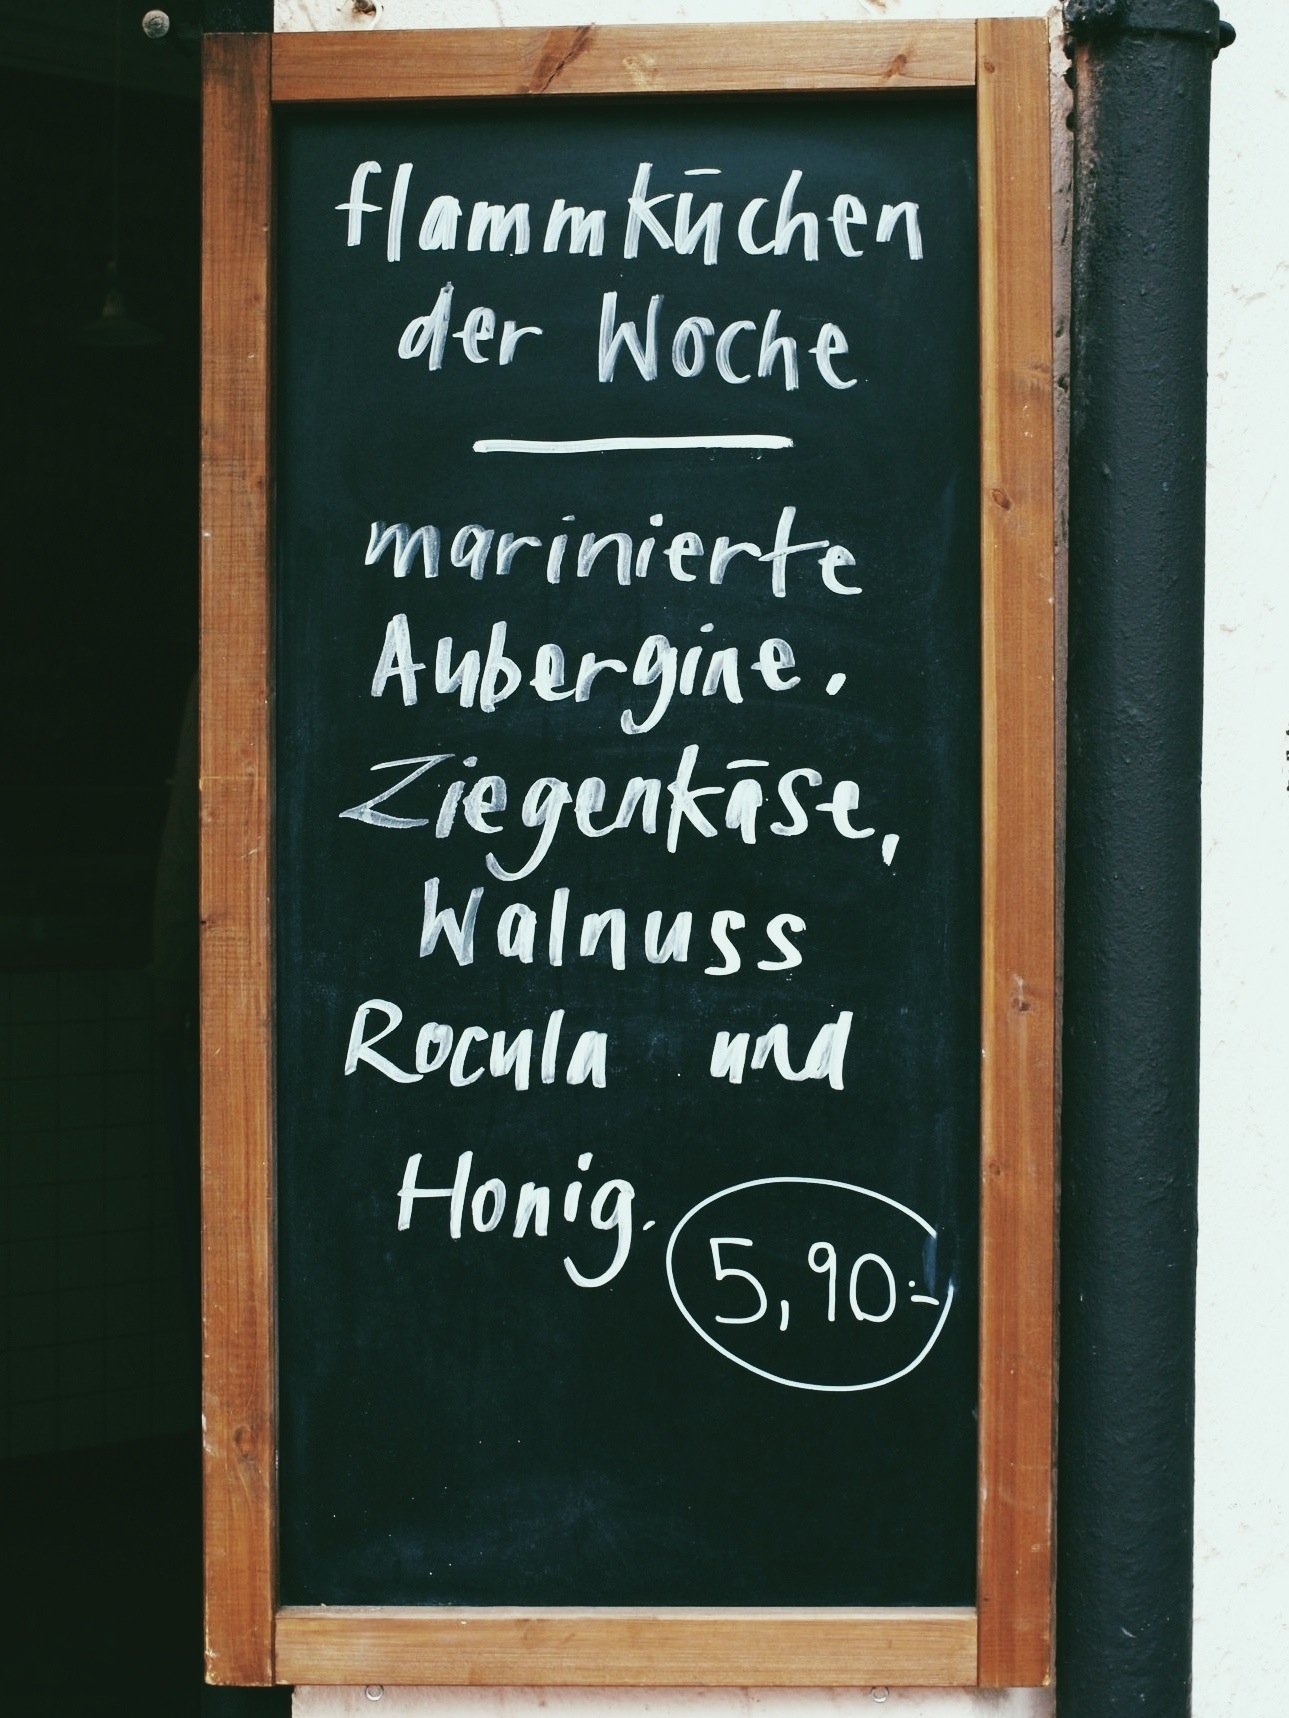 flammkūchen
der Woche
marinierte
Aubergine.
Ziegenkāse,
Walnuss
Rocula und
Honig.
5,90:-